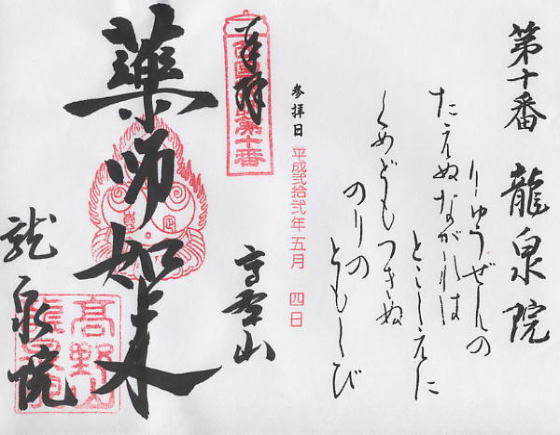 第十番 龍泉院
りゆうぜんの
たえぬながれは
とこしえに
くめどもつきぬ
のりの
ともしび
参拝日 平成弐拾弐年五月 四日
奉拝
第十番
高野山
薬師如来
龍泉院
高野山